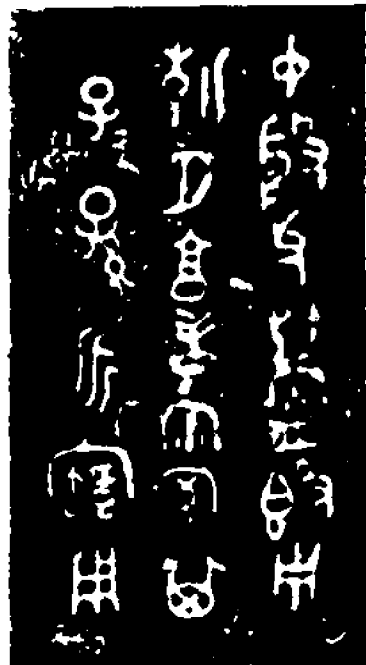 中殷父鑄𣪘用
朝夕亯孝宗室其
子子孫永寶用